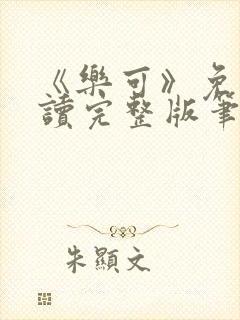 《樂可》免
讀完整版筆
朱顯文